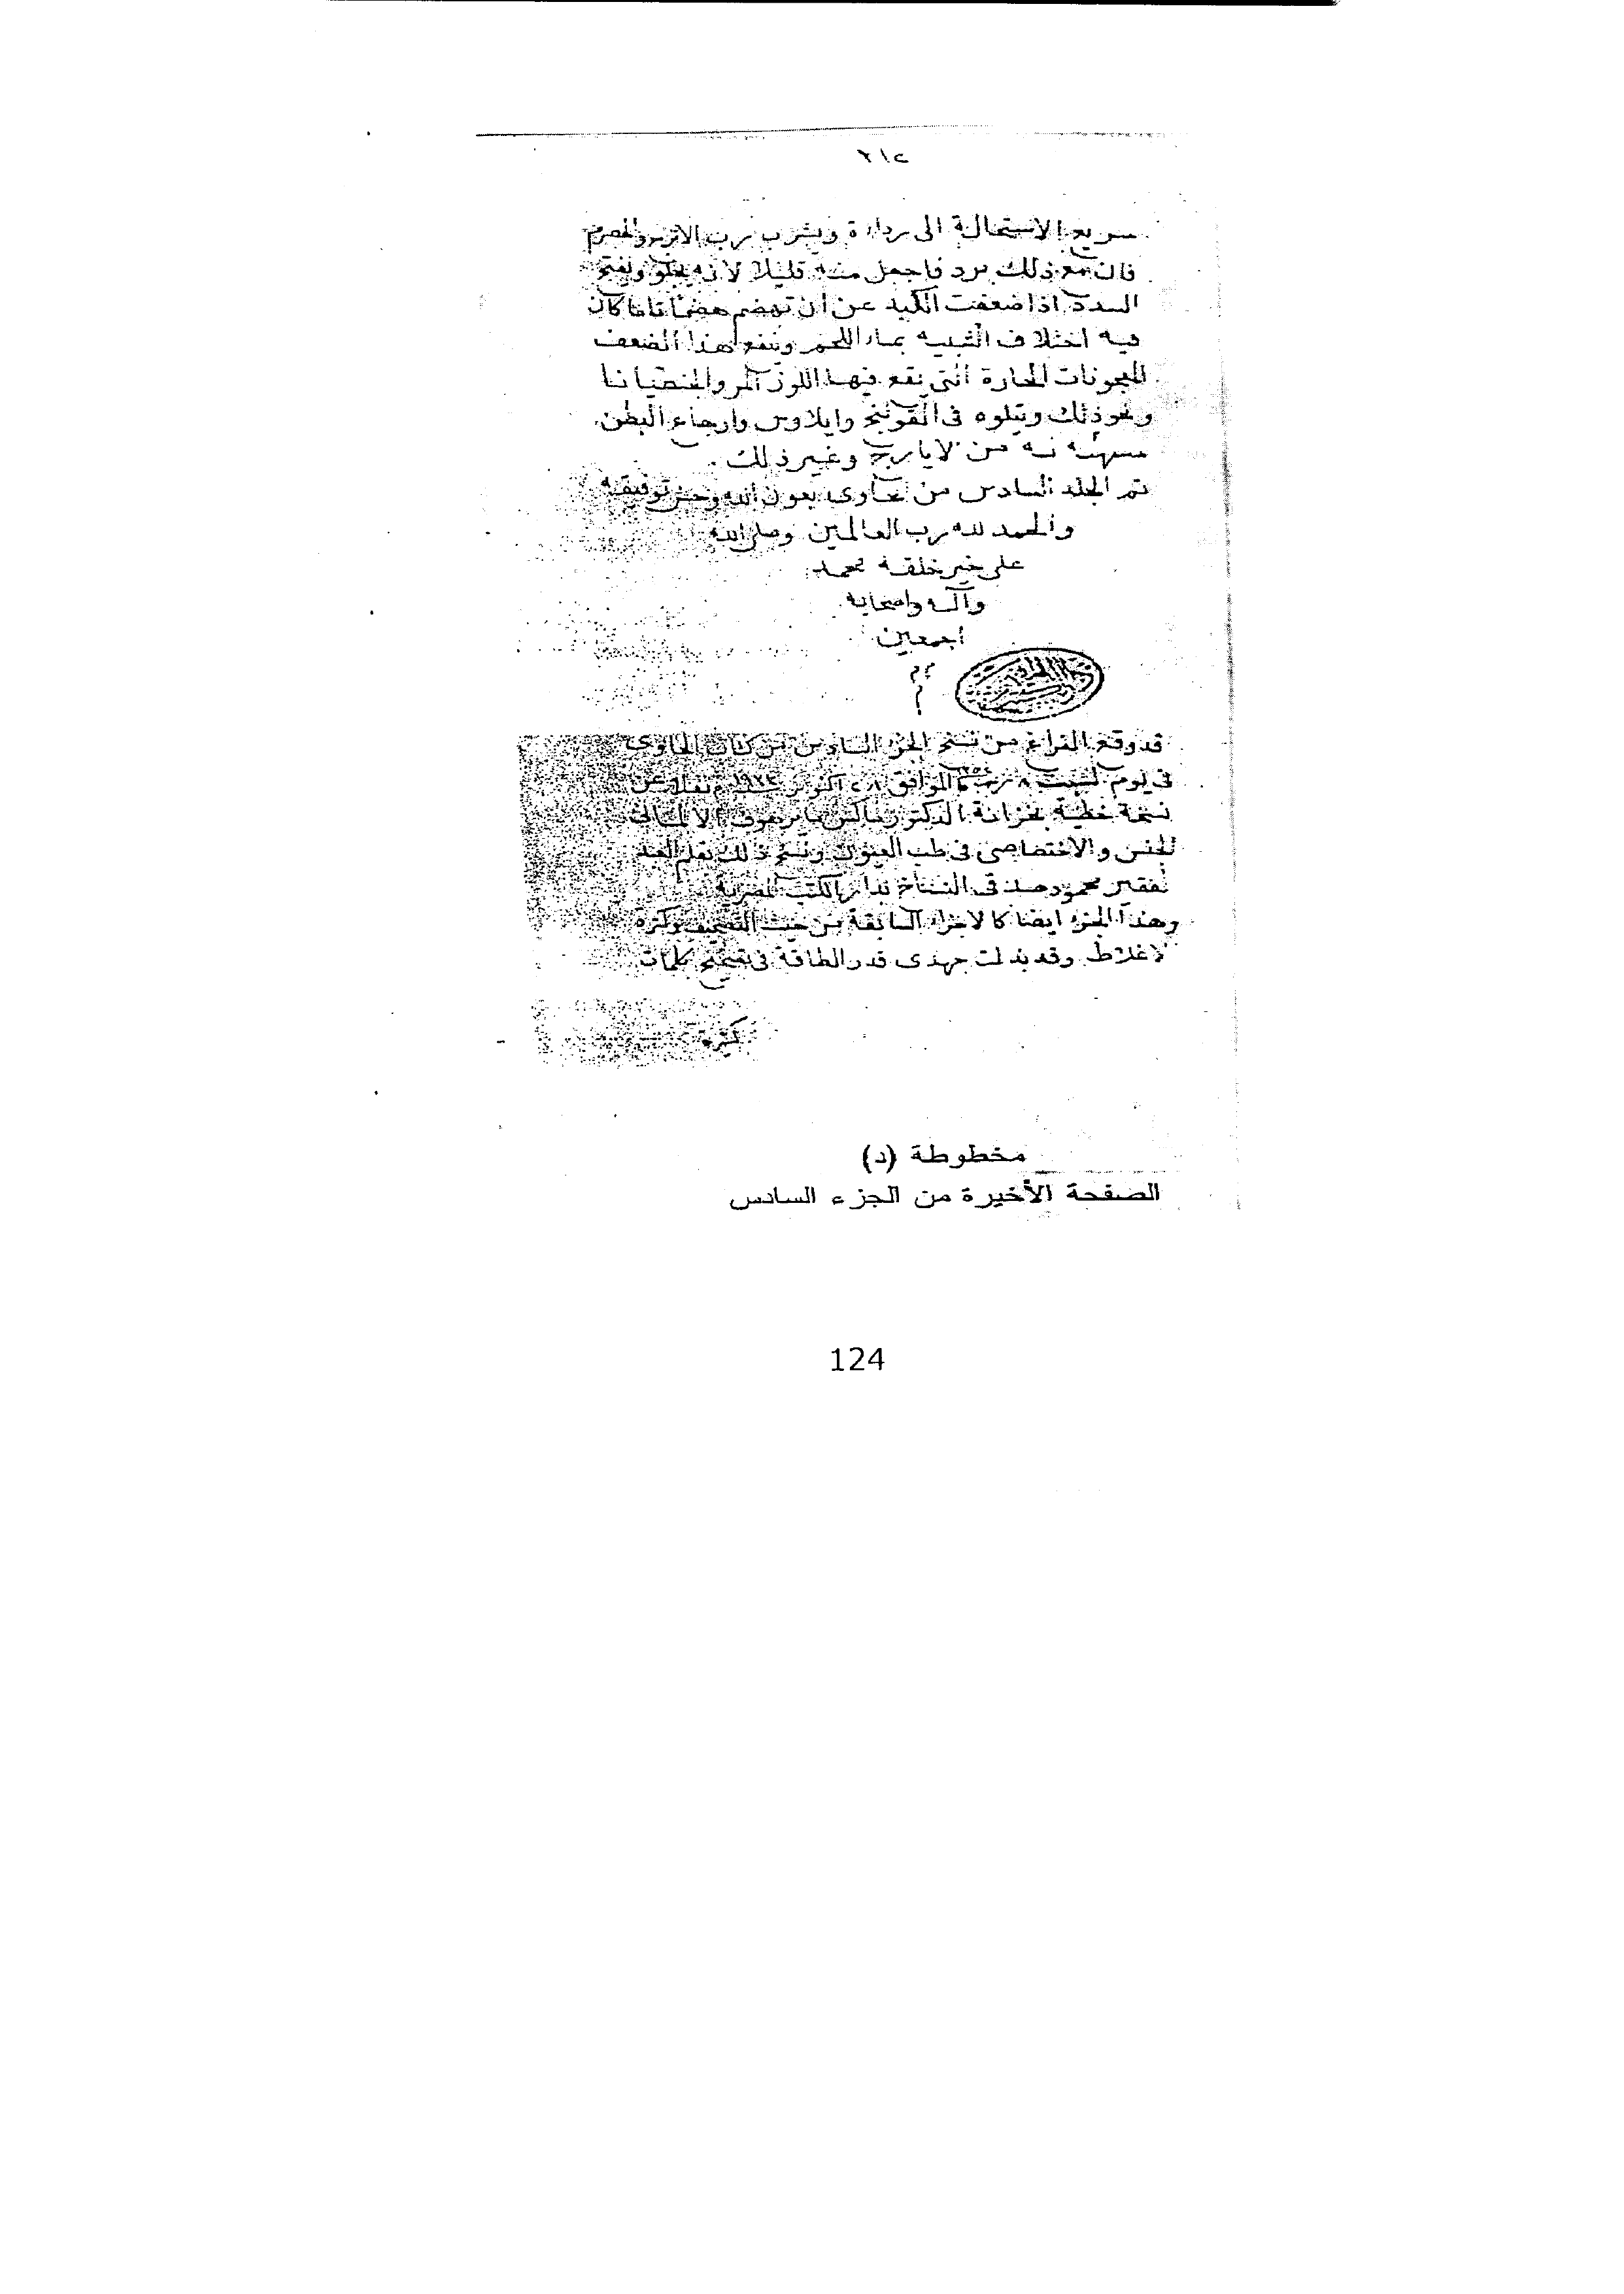 ٢١٢
سريع الاستحالة الى رداءة ويشرب رب الاترج والحصرم
فان مع ذلك برد فاجعل منه قليلا لانه يجلو ويفتح
السدد اذا ضعفت الكبد عن ان تهضم هضما تاما كان
فيه اختلاف الشبيه بماء اللحم وينفع هذا الضعف
المعجونات الحارة التى يقع فيها اللوز المر والجنطيانا
ونحو ذلك ويتلوه فى القولنج وايلاوس واوجاع البطن
من الايارج وغير ذلك
تم المجلد السادس من الحاوى بعون الله وحسن توفيقه
والحمد لله رب العالمين وصلى الله
على خير خلقه محمد
وآله واصحابه
اجمعين
قد وقع الفراغ من نسخ الجزء السادس من كتاب الحاوى
فى يوم السبت ٨ رجب الموافق ٢٨ اكتوبر سنة ١٩٣٣م نقلا عن
نسخة خطية بخزانة الدكتور ماكس مايرهوف الالمانى
الجنس والاختصاصى فى طب العيون ونسخ ذلك بقلم العبد
الفقير محمود صدقى النساخ بدار الكتب المصرية
وهذا الجزء ايضا كالاجزاء السابقة من حيث التصحيف وكثرة
الاغلاط وقد بذلت جهدى قدر الطاقة فى تصحيح كلمات
كثيرة
مخطوطة (د)
الصفحة الأخيرة من الجزء السادس
124